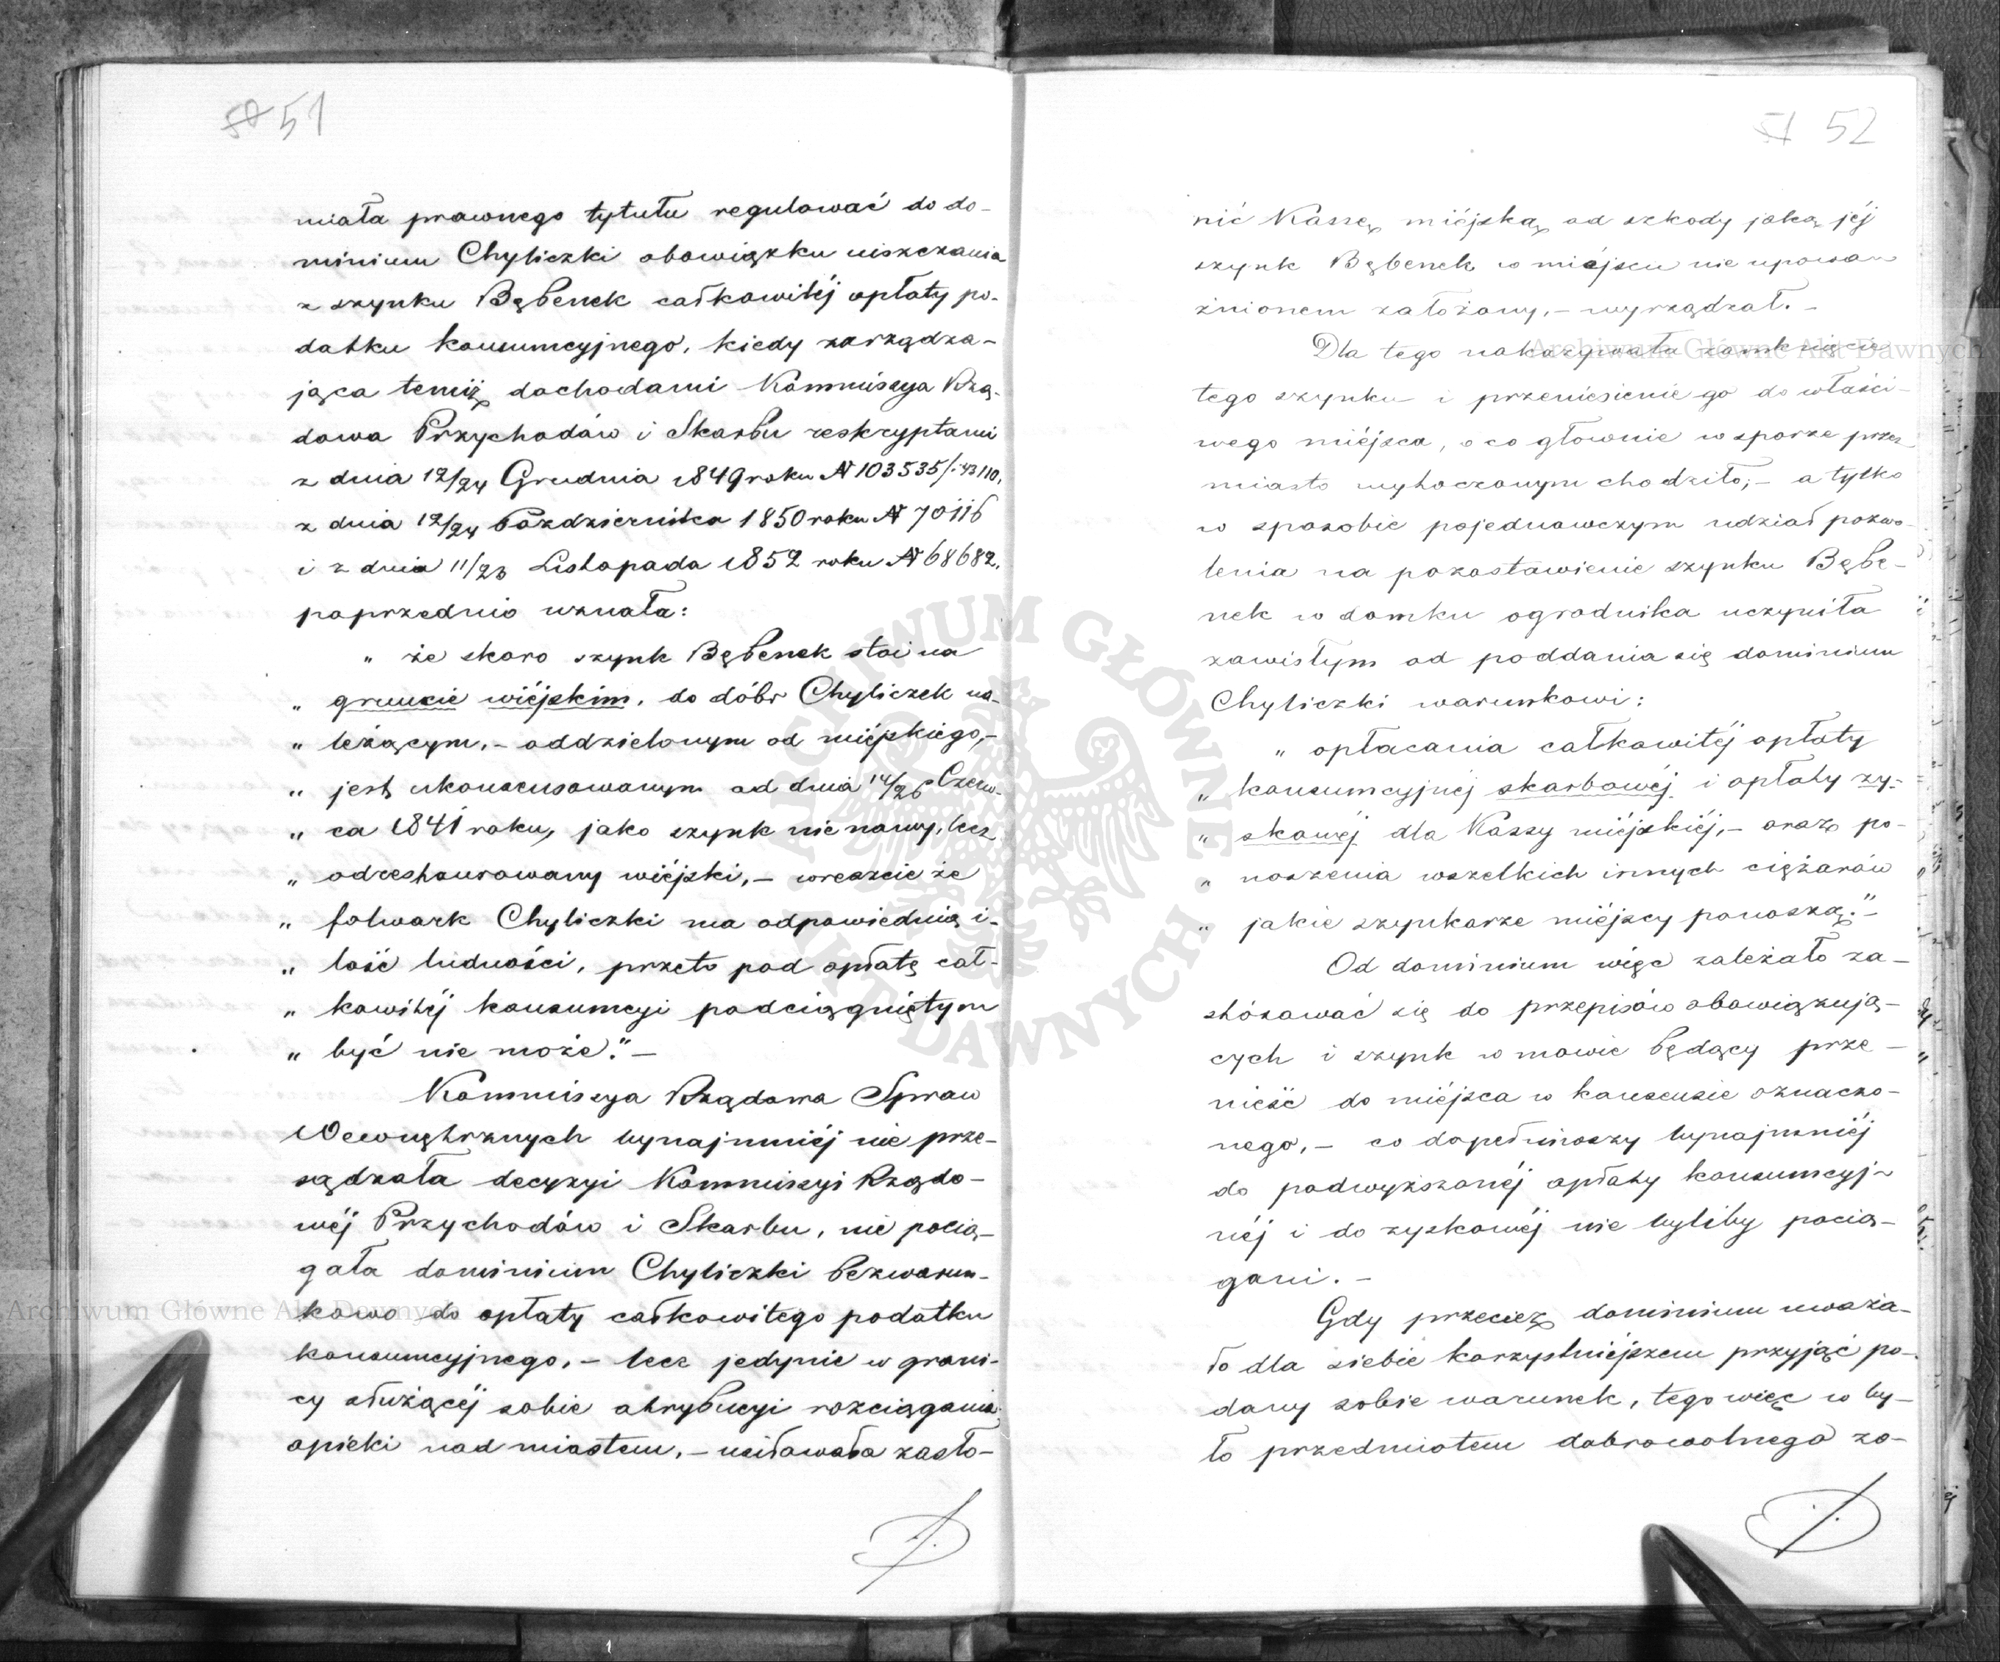 50 51
miała prawnego tytułu regulować do do-
minium Chyliczki obowiązku uiszczania
z szynku Bębenek całkowitéj opłaty po-
datku konsumcyjnego, kiedy zarządza-
jąca temiż dochodami Kommissya Rzą-
dowa Przychodów i Skarbu reskryptami
z dnia 12/24 Grudnia 1849 roku N 103535/43110,
z dnia 12/24 Października 1850 roku N 70116
i z dnia 11/23 Listopada 1852 roku N 68682,
poprzednio uznała:
„ że skoro szynk Bębenek stoi na
„ gruncie wiéjskim, do dóbr Chyliczek na-
„ leżącym, – oddzielonym od miéjskiego, –
„ jest ukonsensowanym od dnia 14/26 Czerw-
„ ca 1841 roku, jako szynk nie nowy, lecz
„ odrestaurowany wiéjski, – wreszcie że
„ folwark Chyliczki ma odpowiednią i-
„ lość ludności, przeto pod opłatę cał-
„ kowitéj konsumcyi podciągniętym
„ być nie może.” –
Kommissya Rządowa Spraw
Wewnętrznych bynajmniéj nie prze-
sądzała decyzyi Kommissyi Rządo-
wéj Przychodów i Skarbu, nie pocią-
gała dominium Chyliczki bezwarun-
kowo do opłaty całkowitego podatku
konsumcyjnego, – lecz jedynie w grani-
cy służącéj sobie atrybucyi rozciągania
opieki nad miastem, – usiłowała zasło-
51 52
nić Kassę miéjską od szkody jaką jéj
szynk Bębenek w miéjscu nie upowa-
żnionem założony, – wyrządzał. –
Dla tego nakazywała zamknięcie
tego szynku i przeniesienie go do właści-
wego miéjsca, o co głównie w sporze przez
miasto wytoczonym chodziło; – a tylko
w sposobie pojednawczym udział pozwo-
lenia na pozostawienie szynku Bębe-
nek w domku ogrodnika uczyniła
zawisłym od poddania się dominium
Chyliczki warunkowi:
„ opłacania całkowitéj opłaty
„ konsumcyjnéj skarbowéj i opłaty zy-
„ skowéj dla Kassy miéjskiéj, – oraz po-
„ noszenia wszelkich innych ciężarów
„ jakie szynkarze miéjscy ponoszą.” –
Od dominium więc zależało za-
stósować się do przepisów obowiązują-
cych i szynk w mowie będący prze-
nieść do miéjsca w konsensie oznaczo-
nego, – co dopełniwszy bynajmniéj
do podwyższonéj opłaty konsumcyj-
néj i do zyskowéj nie byliby pocią-
gani. –
Gdy przecież dominium uważa-
ło dla siebie korzystniéjszem przyjąć po-
dany sobie warunek, tego więc w by-
ło przedmiotem dobrowolnego za-
Archiwum Główne Akt Dawnych
ARCHIWUM GŁÓWNE AKT DAWNYCH
Archiwum Główne Akt Dawnych